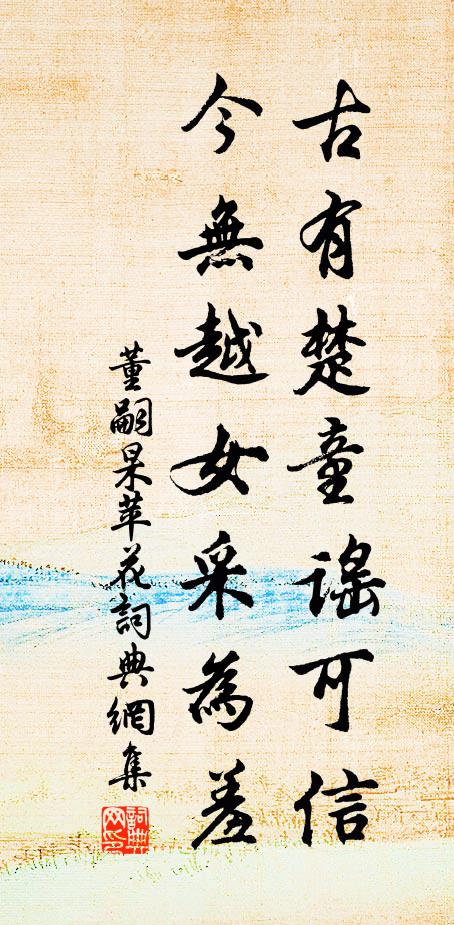 古有楚童謠可信
今無越女采為羞
董嗣杲苹花詞典網集
詞典
网印